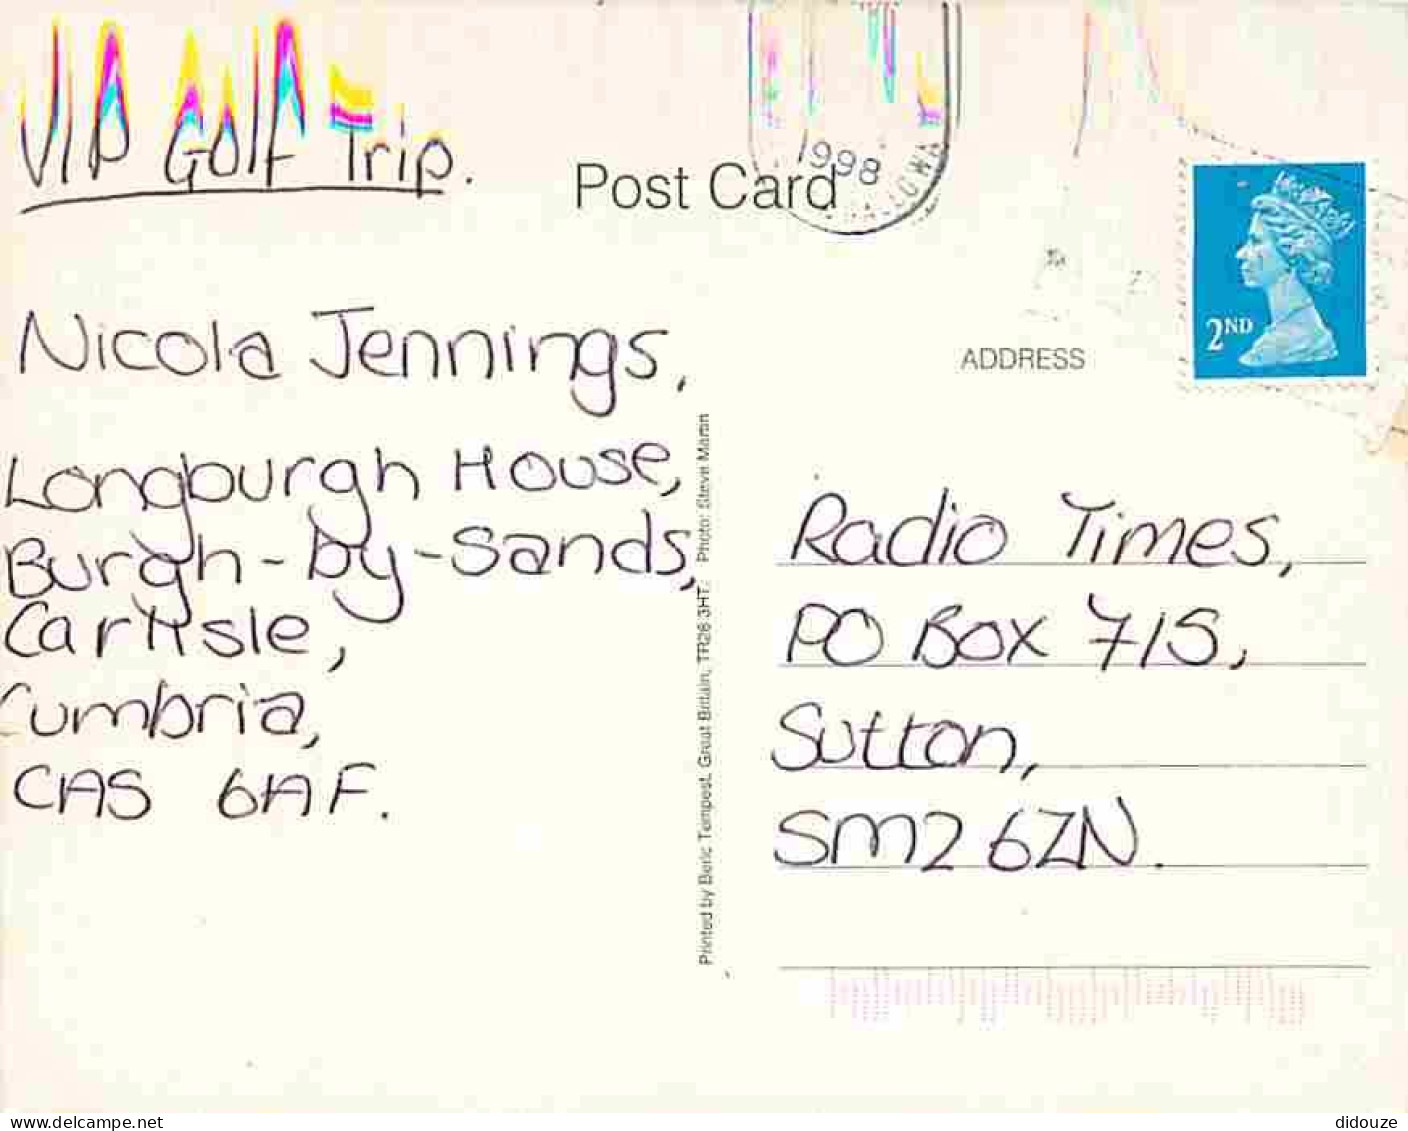 VIP Golf Trip.
Post Card
1998
2ND
ADDRESS
Nicola Jennings,
Longburgh House,
Burgh-by-Sands,
Carlisle,
Cumbria,
CA5 6AF.
Printed by Beric Tempest, Great Britain, TR26 3HT. Photo: Steve Martin
Radio Times,
PO Box 715,
Sutton,
SM2 6ZN.
didouze